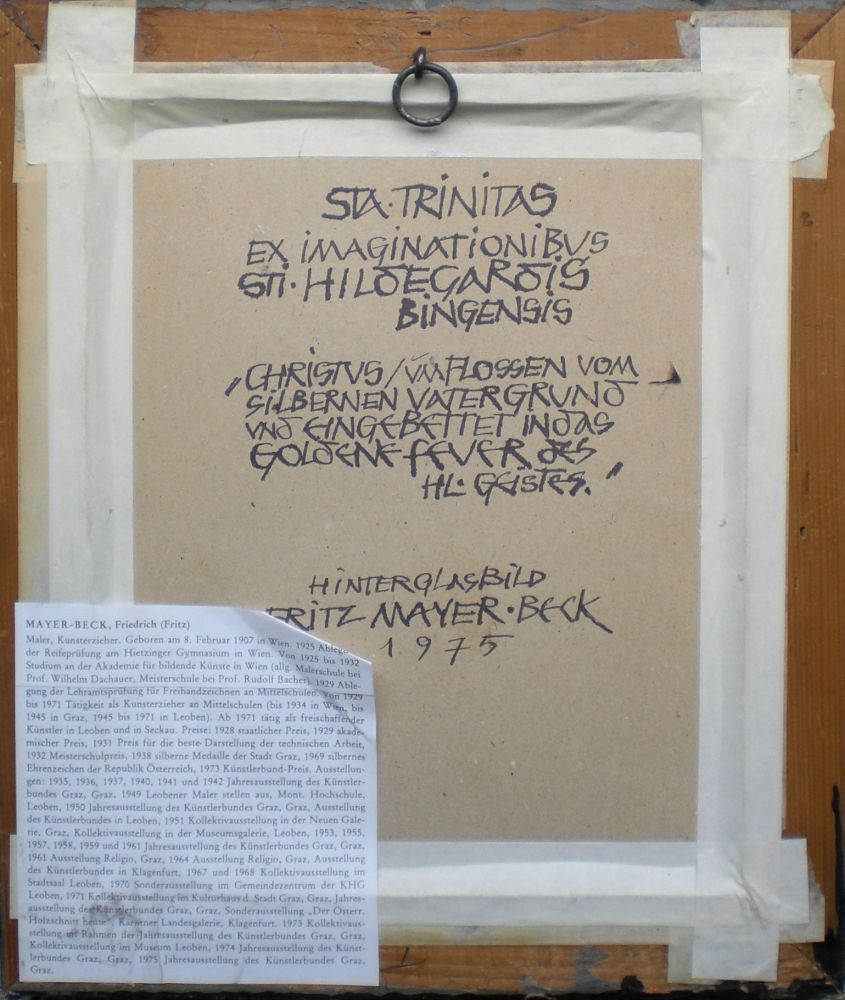 STA·TRINITAS
EX IMAGINATIONIBUS
STI·HILDEGARDIS
BINGENSIS
„CHRISTUS/UMFLOSSEN VOM
SILBERNEN VATERGRUND
UND EINGEBETTET IN DAS
GOLDENE FEUER DES
HL·GEISTES.“
HINTERGLASBILD
FRITZ MAYER·BECK
1975
MAYER-BECK, Friedrich (Fritz)
Maler, Kunsterzieher. Geboren am 8. Februar 1907 in Wien. 1925 Ableg
der Reifeprüfung am Hietzinger Gymnasium in Wien. Von 1925 bis 1932
Studium an der Akademie für bildende Künste in Wien (allg. Malerschule bei
Prof. Wilhelm Dachauer, Meisterschule bei Prof. Rudolf Bacher). 1929 Able-
gung der Lehramtsprüfung für Freihandzeichnen an Mittelschulen. Von 1929
bis 1971 Tätigkeit als Kunsterzieher an Mittelschulen (bis 1934 in Wien, bis
1945 in Graz, 1945 bis 1971 in Leoben). Ab 1971 tätig als freischaffender
Künstler in Leoben und in Seckau. Preise: 1928 staatlicher Preis, 1929 akade-
mischer Preis, 1931 Preis für die beste Darstellung der technischen Arbeit,
1932 Meisterschulpreis, 1938 silberne Medaille der Stadt Graz, 1969 silbernes
Ehrenzeichen der Republik Österreich, 1973 Künstlerbund-Preis. Ausstellun-
gen: 1935, 1936, 1937, 1940, 1941 und 1942 Jahresausstellung des Künstler-
bundes Graz, Graz, 1949 Leobener Maler stellen aus, Mont. Hochschule,
Leoben, 1950 Jahresausstellung des Künstlerbundes Graz, Graz, Ausstellung
des Künstlerbundes in Leoben, 1951 Kollektivausstellung in der Neuen Gale-
rie, Graz, Kollektivausstellung in der Museumsgalerie, Leoben, 1953, 1955,
1957, 1958, 1959 und 1961 Jahresausstellung des Künstlerbundes Graz, Graz,
1961 Ausstellung Religio, Graz, 1964 Ausstellung Religio, Graz, Ausstellung
des Künstlerbundes in Klagenfurt, 1967 und 1968 Kollektivausstellung im
Stadtsaal Leoben, 1970 Sonderausstellung im Gemeindezentrum der KHG
Leoben, 1971 Kollektivausstellung im Kulturhaus d. Stadt Graz, Graz, Jahres-
ausstellung des Künstlerbundes Graz, Graz, Sonderausstellung „Der Österr.
Holzschnitt heute“, Kärntner Landesgalerie, Klagenfurt. 1973 Kollektivaus-
stellung im Rahmen der Jahresausstellung des Künstlerbundes Graz, Graz,
Kollektivausstellung im Museum Leoben, 1974 Jahresausstellung des Künst-
lerbundes Graz, Graz, 1975 Jahresausstellung des Künstlerbundes Graz,
Graz.